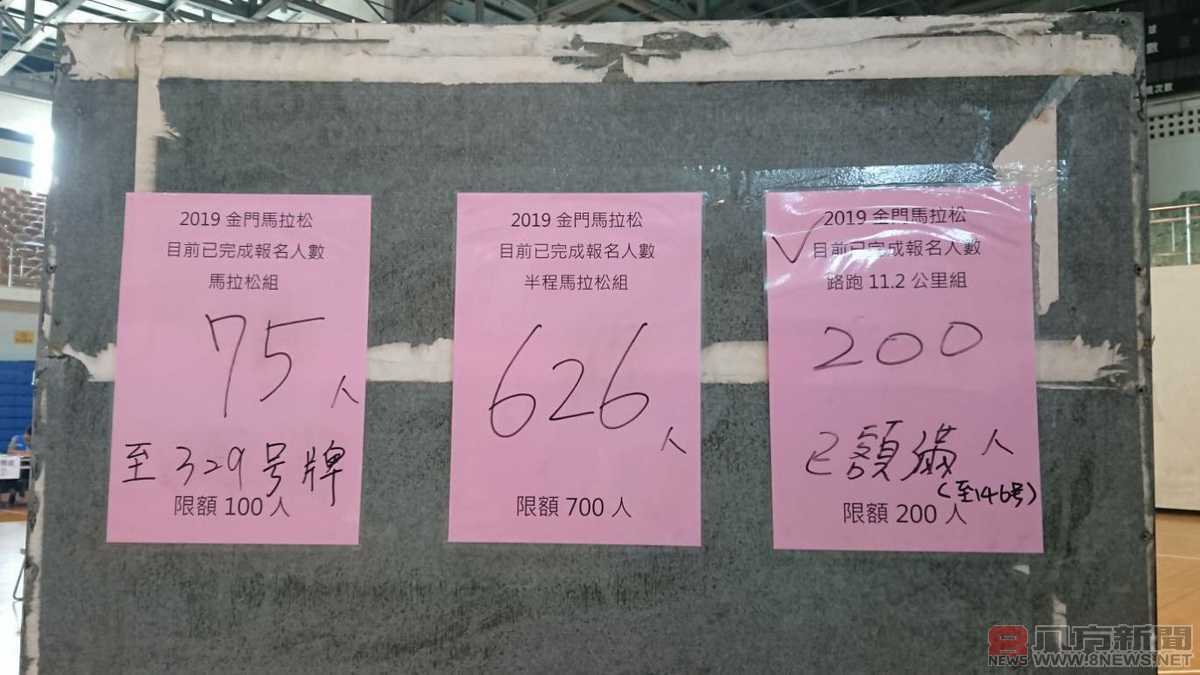 2019 金門馬拉松
目前已完成報名人數
馬拉松組
75
人
至329号牌
限額 100 人
2019 金門馬拉松
目前已完成報名人數
半程馬拉松組
626
人
限額 700 人
2019 金門馬拉松
目前已完成報名人數
路跑 11.2 公里組
200
已額滿 人
(至146号)
限額 200 人
八方新聞
NEWS WWW.8NEWS.NET